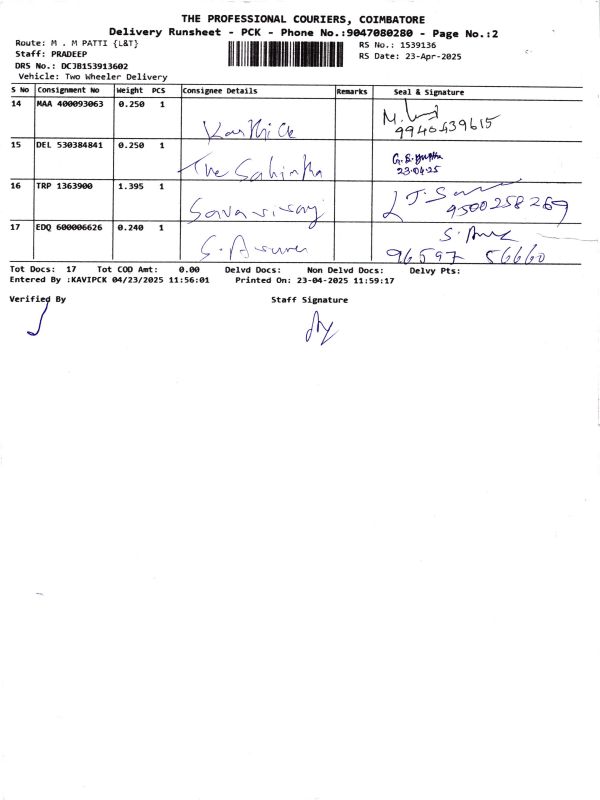 THE PROFESSIONAL COURIERS, COIMBATORE
Delivery Runsheet - PCK - Phone No.:9047080280 - Page No.:2
Route: M . M PATTI {L&T}
RS No.: 1539136
Staff: PRADEEP
RS Date: 23-Apr-2025
DRS No.: DCJB153913602
Vehicle: Two Wheeler Delivery
S No Consignment No Weight PCS Consignee Details Remarks Seal & Signature
14 MAA 400093063 0.250 1 Karthick M.
9940439615
15 DEL 530384841 0.250 1 The G.S.Gupta
23.04.25
16 TRP 1363900 1.395 1 J.
9500258269
17 EDQ 600006626 0.240 1 S. S.
96597 56660
Tot Docs: 17 Tot COD Amt: 0.00 Delvd Docs: Non Delvd Docs: Delvy Pts:
Entered By :KAVIPCK 04/23/2025 11:56:01 Printed On: 23-04-2025 11:59:17
Verified By Staff Signature